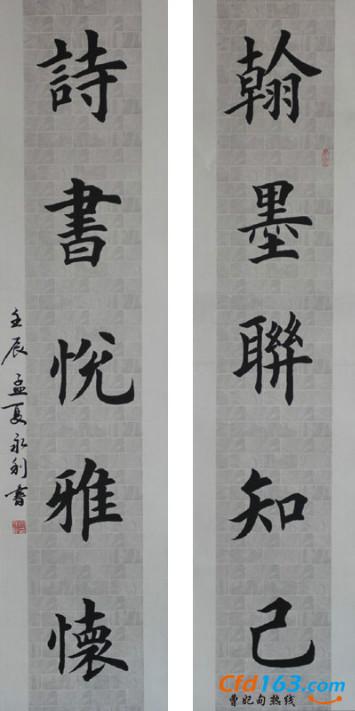 翰墨聯知己
詩書悅雅懷
壬辰孟夏永利書
Cfd163.com
曹妃甸热线